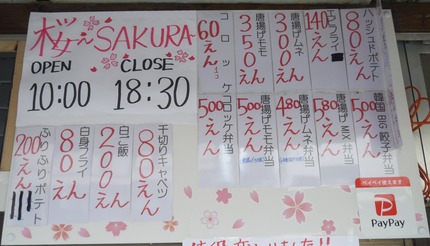 桜〜SAKURA
OPEN
CLOSE
10:00
18:30
ハッシュドポテト
80えん
エビフライ
140えん
唐揚げムネ
300えん
唐揚げモモ
350えん
コロッケ
1コ
60えん
韓国BIG餃子弁当
500えん
唐揚げMIX弁当
580えん
唐揚げムネ弁当
480えん
唐揚げモモ弁当
500えん
コロッケ弁当
500えん
千切りキャベツ
80えん
白ご飯
200えん
白身フライ
80えん
ふりふりポテト
200えん
ペイペイ使えます
PayPay